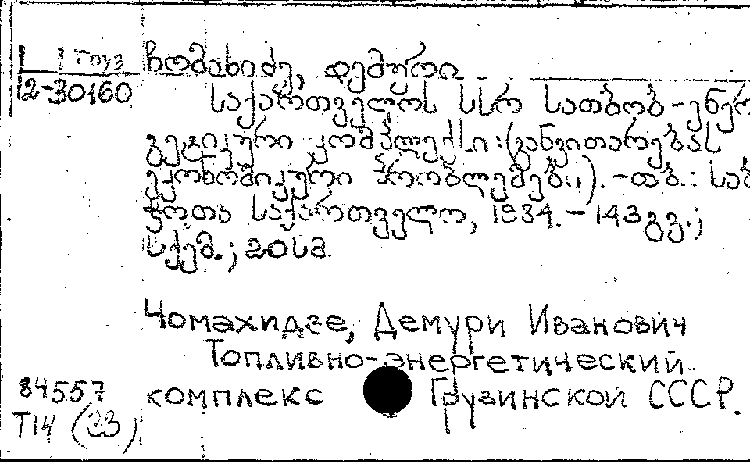 Груз ჩომახიძე, დემური
12-30160 საქართველოს სსრ სათბობ-ენერ
გეტიკური კომპლექსი: (განვითარების
ეკონომიკური პრობლემები). - თბ.: საბ
ჭოთა საქართველო, 1984. - 143 გვ.;
სქემ.; 20სმ
Чомахидзе, Демури Иванович
Топливно-энергетический
84557 комплекс Грузинской ССР.
Т14 (23)